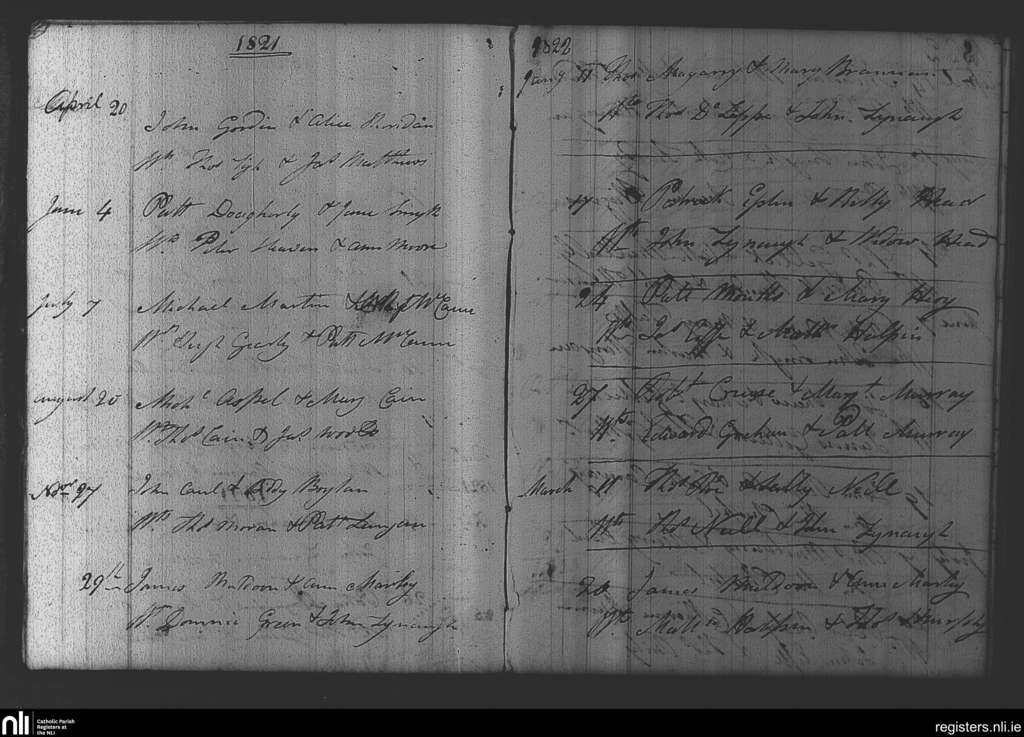 1821
April 20
John Gordin & Alice
Wts Thos Tigh & Jas Matthews
June 4
Patt Dougherly & Jane Smyth
Wts Peter & Ann Moore
July 7
Michael Martin & McCann
Wts Hugh & Patt McCann
August 20
Michl Aspel & Mary Cain
Wts Thos Cain & Jas Woods
Novr 27
John Caul & Boylan
Wts Thos Moran & Patt Lanyan
29th James Muldoon & Ann Marky
Wts Dominic Green & John Lynaugh
1822
Jany 11 Thos Magarry & Mary Brannan
Wts Thos & John Lynaugh
17 Patrick & Kitty Head
Wts John Lynaugh & Widow Head
24 Patt Monks & Mary Hoy
Wts & Matth Halpin
27 Robt Cruise & Margt Murray
Wts Edward Graham & Patt Murray
March 11 Thos & Sally Neill
Wts Thos Neill & John Lynaugh
20 James Muldoon & Ann Marky
Wts Matt Halpin & Thos Murphy
nli
Catholic Parish
Registers at
the NLI
registers.nli.ie